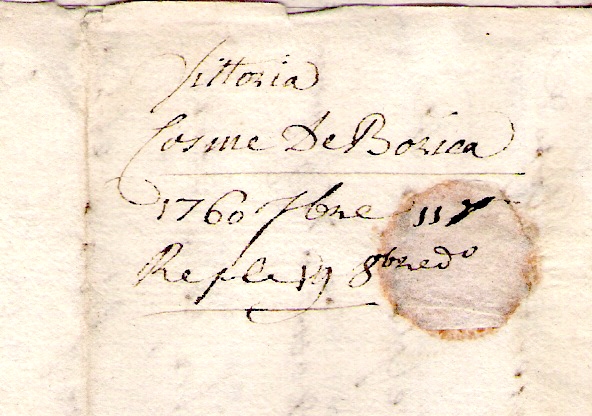 Vittoria
Cosme De Borica
1760 7bre 11
Resp.le 19 8bre do